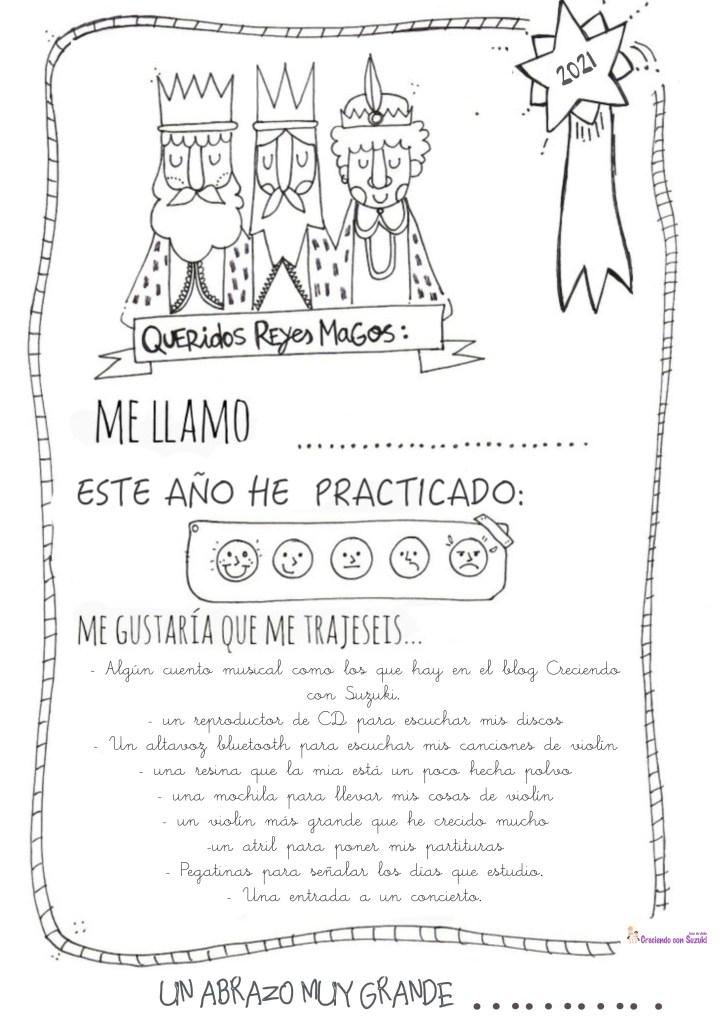 2021
QUERIDOS REYES MAGOS:
ME LLAMO ............................
ESTE AÑO HE PRACTICADO:
ME GUSTARÍA QUE ME TRAJESEIS...
- Algún cuento musical como los que hay en el blog Creciendo
con Suzuki.
- un reproductor de CD para escuchar mis discos
- Un altavoz bluetooth para escuchar mis canciones de violín
- una resina que la mia está un poco hecha polvo
- una mochila para llevar mis cosas de violín
- un violín más grande que he crecido mucho
-un atril para poner mis partituras
- Pegatinas para señalar los días que estudio.
- Una entrada a un concierto.
Creciendo con Suzuki
UN ABRAZO MUY GRANDE ...........